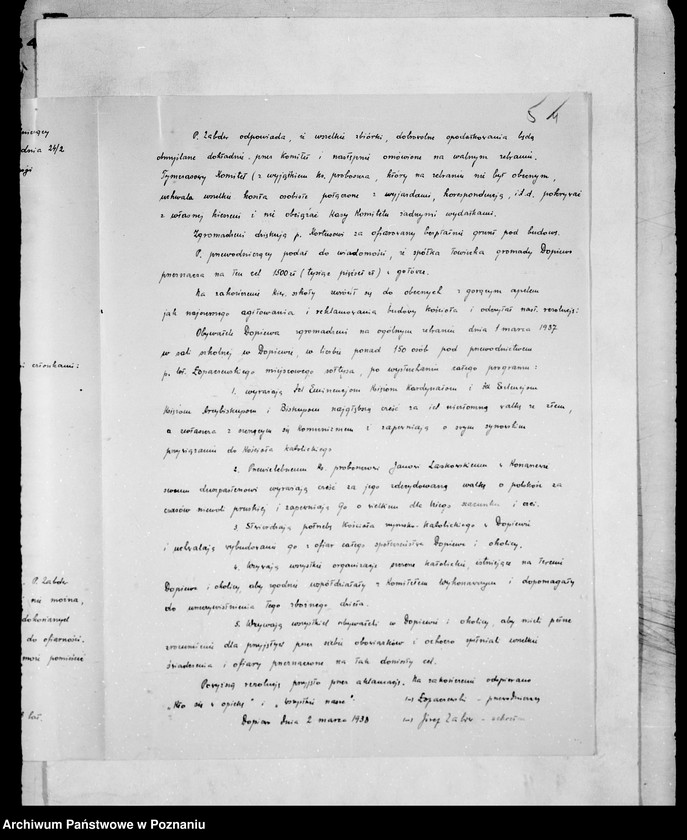 54
P. Zabdr odpowiada, iż wszelkie zbiórki, dobrowolne opodatkowania będą
obmyślane dokładnie przez Komitet i następnie omówione na walnym zebraniu.
Tymczasowy Komitet (z wyjątkiem ks. proboszcza, który na zebraniu nie był obecnym,
uchwala wszelkie koszta osobiste połączone z wyjazdami, korespondencją, i.t.d. pokrywać
z własnej kieszeni i nie obciążać kasy Komitetu żadnymi wydatkami.
Zgromadzeni dziękują p. za ofiarowany bezpłatnie grunt pod budowę.
P. przewodniczący podał do wiadomości, że spółka łowiecka gromady Dopiewo
przeznacza na ten cel 1500 zł (tysiąc pięćset zł) w gotówce.
Na zakończenie kier. szkoły zwrócił się do obecnych z gorącym apelem
jak najszerszego agitowania i reklamowania budowy Kościoła i odczytał nast. rezolucję:
Obywatele Dopiewa zgromadzeni na ogólnym zebraniu dnia 1 marca 1937
w sali szkolnej w Dopiewie, w liczbie ponad 150 osób pod przewodnictwem
p. Łopaczewskiego miejscowego sołtysa, po wysłuchaniu całego programu:
1. wyrażają Ich Eminencjom Księżom Kardynałom i Ich Excelencjom
Księżom Arcybiskupom i Biskupom najgłębszą cześć za ich niezłomną walkę ze złem,
a zwłaszcza z szerzącym się komunizmem i zapewniają o swym synowskim
przywiązaniu do Kościoła katolickiego
2. Przewielebnemu ks. proboszczowi Janowi Laskowskiemu z Konarzewa
swemu duszpasterzowi wyrażają cześć za jego zdecydowaną walkę o polskość za
czasów niewoli pruskiej i zapewniają Go o wielkim dla Niego szacunku i czci.
3. Stwierdzają potrzebę Kościoła rzymsko-katolickiego w Dopiewie
i uchwalają wybudowanie go z ofiar całego społeczeństwa Dopiewa i okolicy.
4. Wzywają wszystkie organizacje szczerze katolickie, istniejące na terenie
Dopiewa i okolicy, aby zgodnie współdziałały z Komitetem wykonawczym i dopomagały
do urzeczywistnienia tego zbożnego dzieła.
5. Wzywają wszystkich obywateli w Dopiewie i okolicy, aby mieli pełne
zrozumienie dla przyjętych przez siebie obowiązków i ochoczo spełniali wszelkie
świadczenia i ofiary przeznaczone na tak doniosły cel.
Powyższą rezolucję przyjęto przez aklamację. Na zakończenie odśpiewano
„Kto się w opiekę" i „Wszystkie nasze". Łopaczewski - przewodniczący
Dopiewo dnia 2 marca 1938 Józef Zabor - sekretarz
dnia 24/2
członkami:
P. Zabdr
nie można,
dokonanych
do ofiarności.
pomieścić
Archiwum Państwowe w Poznaniu